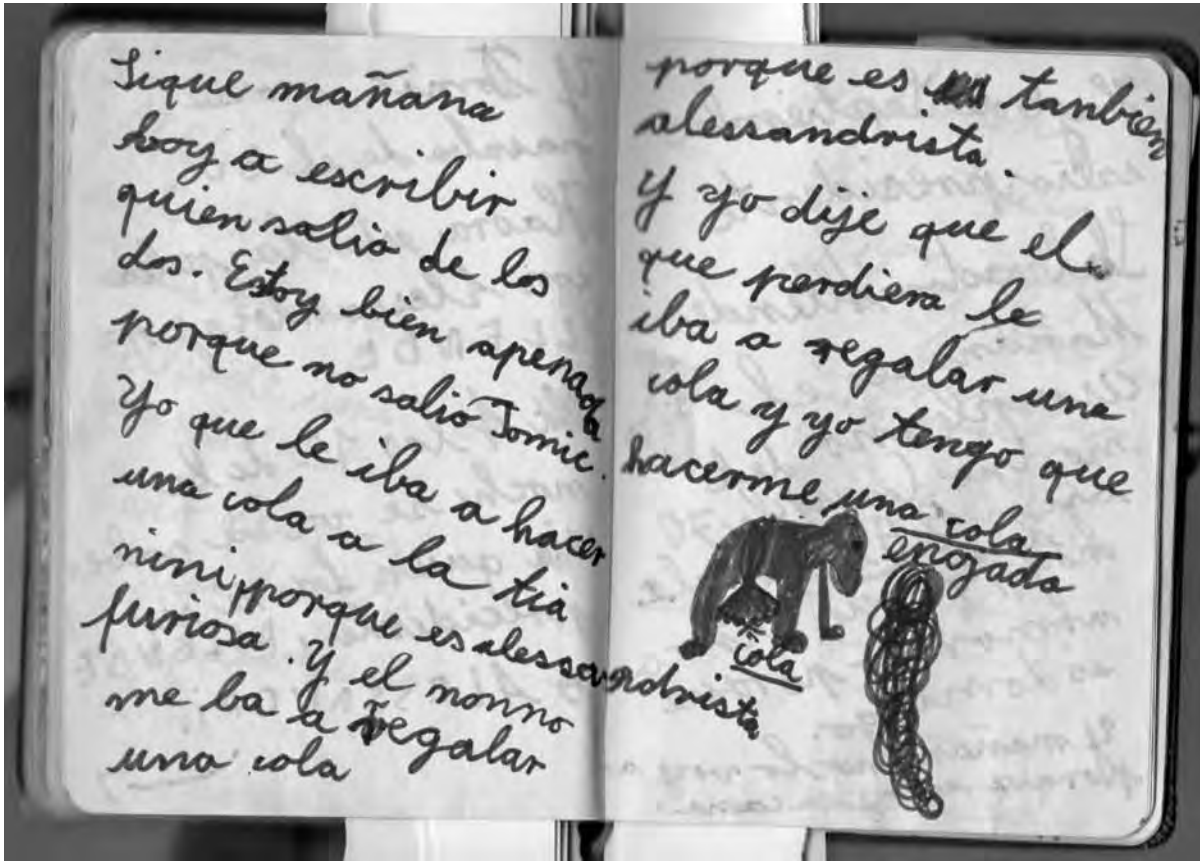 Sique mañana
boy a escribir
quien salio de los
dos. Estoy bien apenada
porque no salio Tomic.
Yo que le iba a hacer
una cola a la tia
nini, porque es alessandrista
furiosa. Y el nonno
me ba a regalar
una cola
porque es tanbien
alessandrista.
Y yo dije que el
que perdiera le
iba a regalar una
cola y yo tengo que
hacerme una cola
enojada
cola